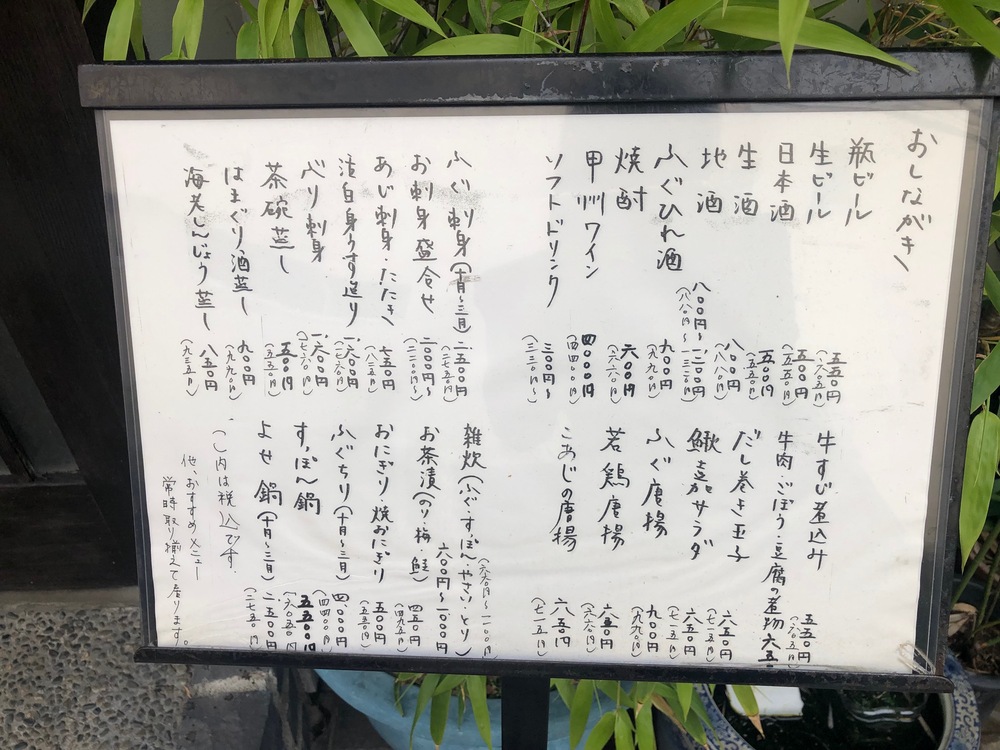 おしながき
瓶ビール 五五〇円(六〇五円)
生ビール 五〇〇円(五五〇円)
日本酒 五〇〇円(五五〇円)
生酒 八〇〇円(八八〇円)
地酒 八〇〇円~一、二〇〇円(八八〇円~一三二〇円)
ふぐひれ酒 九〇〇円(九九〇円)
焼酎 六〇〇円(六六〇円)
甲州ワイン 四〇〇〇円(四四〇〇円)
ソフトドリンク 三〇〇円~(三三〇円~)
ふぐ刺身(十月~三月) 二、五〇〇円(二七五〇円)
お刺身盛合せ 二〇〇〇円~(二二〇〇円~)
あじ刺身・たたき 七五〇円(八二五円)
白身うす造り 一、六〇〇円(一七六〇円)
刺身 一、六〇〇円(一七六〇円)
茶碗蒸し 五〇〇円(五五〇円)
はまぐり酒蒸し 九〇〇円(九九〇円)
海老しんじょう蒸し 八五〇円(九三五円)
牛すじ煮込み 五五〇円(六〇五円)
牛肉・ごぼう・豆腐の煮物 六五
だし巻き玉子 六五〇円(七一五円)
サラダ 六五〇円(七一五円)
ふぐ唐揚 九〇〇円(九九〇円)
若鶏唐揚 六〇〇円(六六〇円)
こあじの唐揚 六五〇円(七一五円)
雑炊(ふぐ・すっぽん・やさい・とり) 六〇〇円~一、〇〇〇円(六六〇円~一一〇〇円)
お茶漬(のり・梅・鮭) 四五〇円(四九五円)
おにぎり・焼おにぎり 五〇〇円(五五〇円)
ふぐちり(十月~三月) 四〇〇〇円(四四〇〇円)
すっぽん鍋 五五〇〇円(六〇五〇円)
よせ鍋(十月~三月) 二、五〇〇円(二七五〇円)
( )内は税込です。
他、おすすめメニュー
常時取り揃えて居ります。